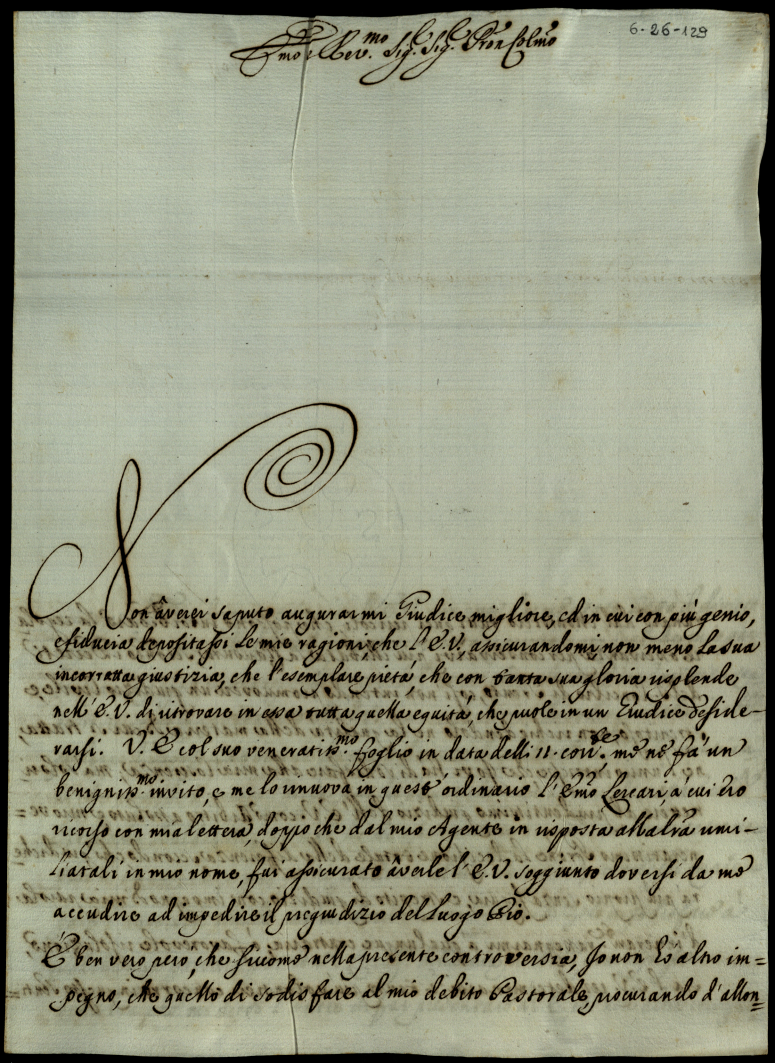 6-26-129
Emo e Rev.mo Sig.r Sig.r Pron Colmo
Non averei saputo augurarmi Giudice migliore, ed in cui con più genio,
e fiducia depositassi le mie ragioni, che l'E.V., assicurandomi non meno la sua
incorrotta giustizia, che l'esemplare pietà, che con tanta sua gloria risplende
nell'E.V. di ritrovare in essa tutta quella equità, che puole in un Giudice deside-
rarsi. V. E col suo veneratiss.mo foglio in data delli 11. corr.te me ne fà un
benigniss.mo invito, e me lo rinuova in quest'ordinario l'Emo Lercari, a cui diò
ricorso con mia lettera, doppo che dal mio Agente in risposta all'altra umi-
liatali in mio nome, fui assicurato averle l'E.V. soggiunto doversi da me
accudire ad impedire il pregiudizio del Luogo Pio.
È ben vero però, che siccome nella presente controversia, Io non hò altro im=
pegno, che quello di sodisfare al mio debito Pastorale, procurando d'allon=